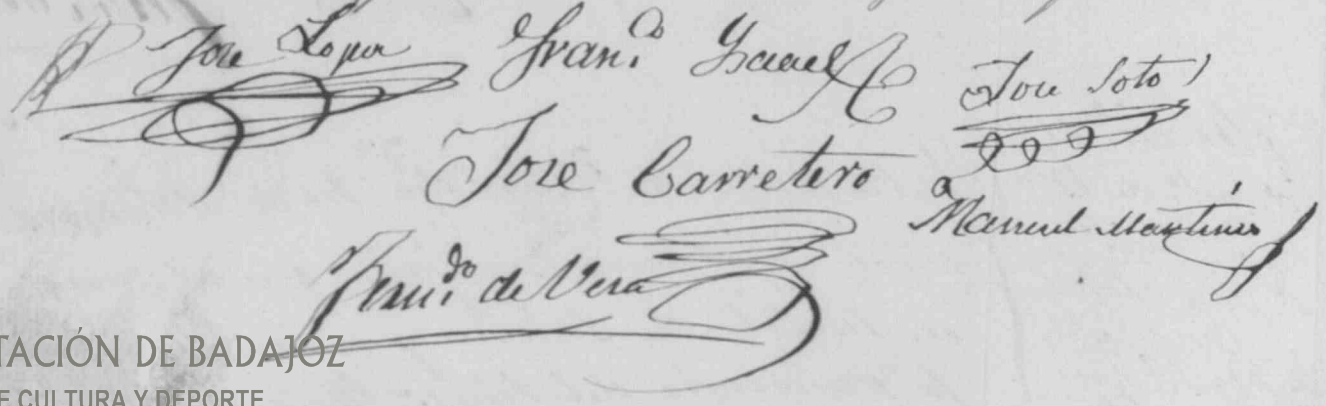 Jose Lopez Fran.co Ysael Jose Soto
Jose Carretero
Manuel Martinez
Fern.do de Vera
TACIÓN DE BADAJOZ
E CULTURA Y DEPORTE